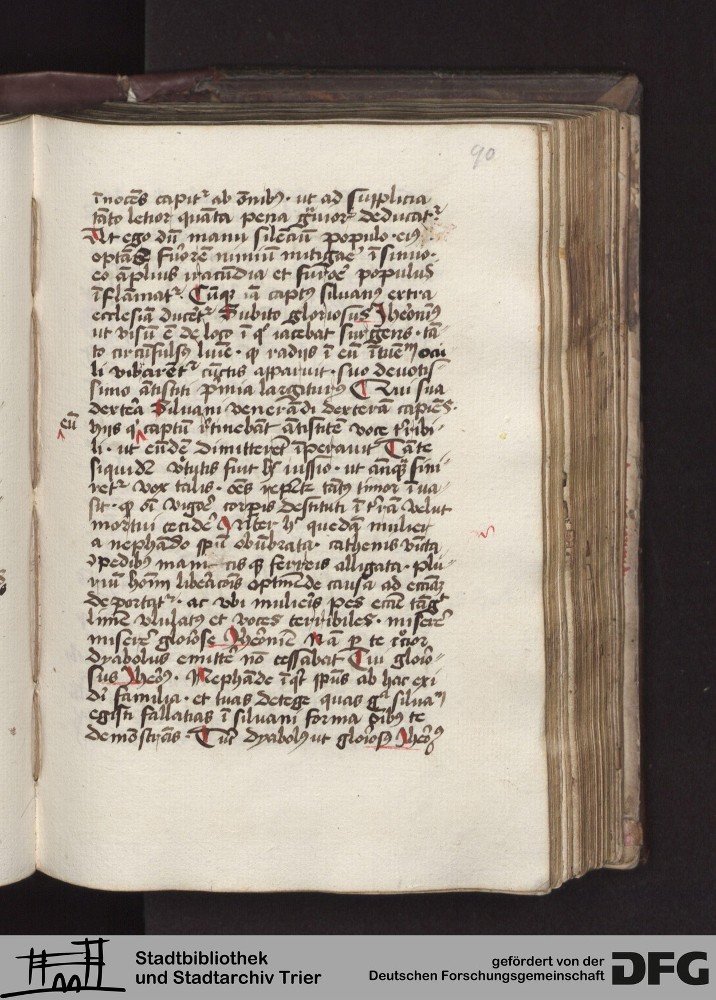 90
īnocēs capit᷑ ab ōnibꝫ · ut ad supplicia
tāto letior quāta pena g̃uior deducat᷑
At ego dū manu silēciū populo · eiꝰ
optās furorē nimiū mitigare ī sinuo ·
eo āplius iracūdia et furoē populus
īflāmat᷑ · Cūqꝫ iā captꝰ siluanꝰ extra
ecclesiā ducet᷑ Subito gloriosus Jheronimꝰ
ut visū ē de loco ī q° iacebat surgens · tā
to circūfulsꝰ luīe · qꝫ radijs ī eū ītuēᷓ ocu
li vibrarēt᷑ cūctis apparuit · suo deuotis
simo ātistiti p̄mia largiturꝰ Qui sua
dexterᷓa Siluani venerādi dexterā capiēs ·
eū
hijs q° captū r̄tinebāt ātistitē voce t̄ribi
li · ut eūdē dimitterēt īperauit Tāte
siquidē v̄tutis fuit hꝫ iussio · ut ānqᷓ fini
ret᷑ vox talis · oēs rep̄lꝫ tātꝰ timor īua
sit · qꝫ oī vigorē corpis destituti ī t̄rā velut
mortui cecidē Inter hꝫ quedam mulier
a nephādo sp̄u obūbrata · cathenis vīcta
pedibꝫ manicisqꝫ ferreis alligata · plu
riū hoīm liberacōis optīende causa ad ecciāꝫ
deportat᷑ · ac vbi mulieris pes eccīe tāg̃
limē vlulatꝰ et voces terribiles · misere
misere gloriose Jheronime Nā p te īcior
dyabolus emitte nō cessabat Cui glorio
sus Jheroꝰ · Nephande īqt sp̄us ab hac exi
dī familia · et tuas detege quas g° siluaᷓ
egisti fallatias ī siluani forma ōibꝫ te
demōstrās · Tūc dyabolꝰ ut gloriosꝰ Jheroꝰ
Stadtbibliothek
und Stadtarchiv Trier
gefördert von der
Deutschen Forschungsgemeinschaft
DFG